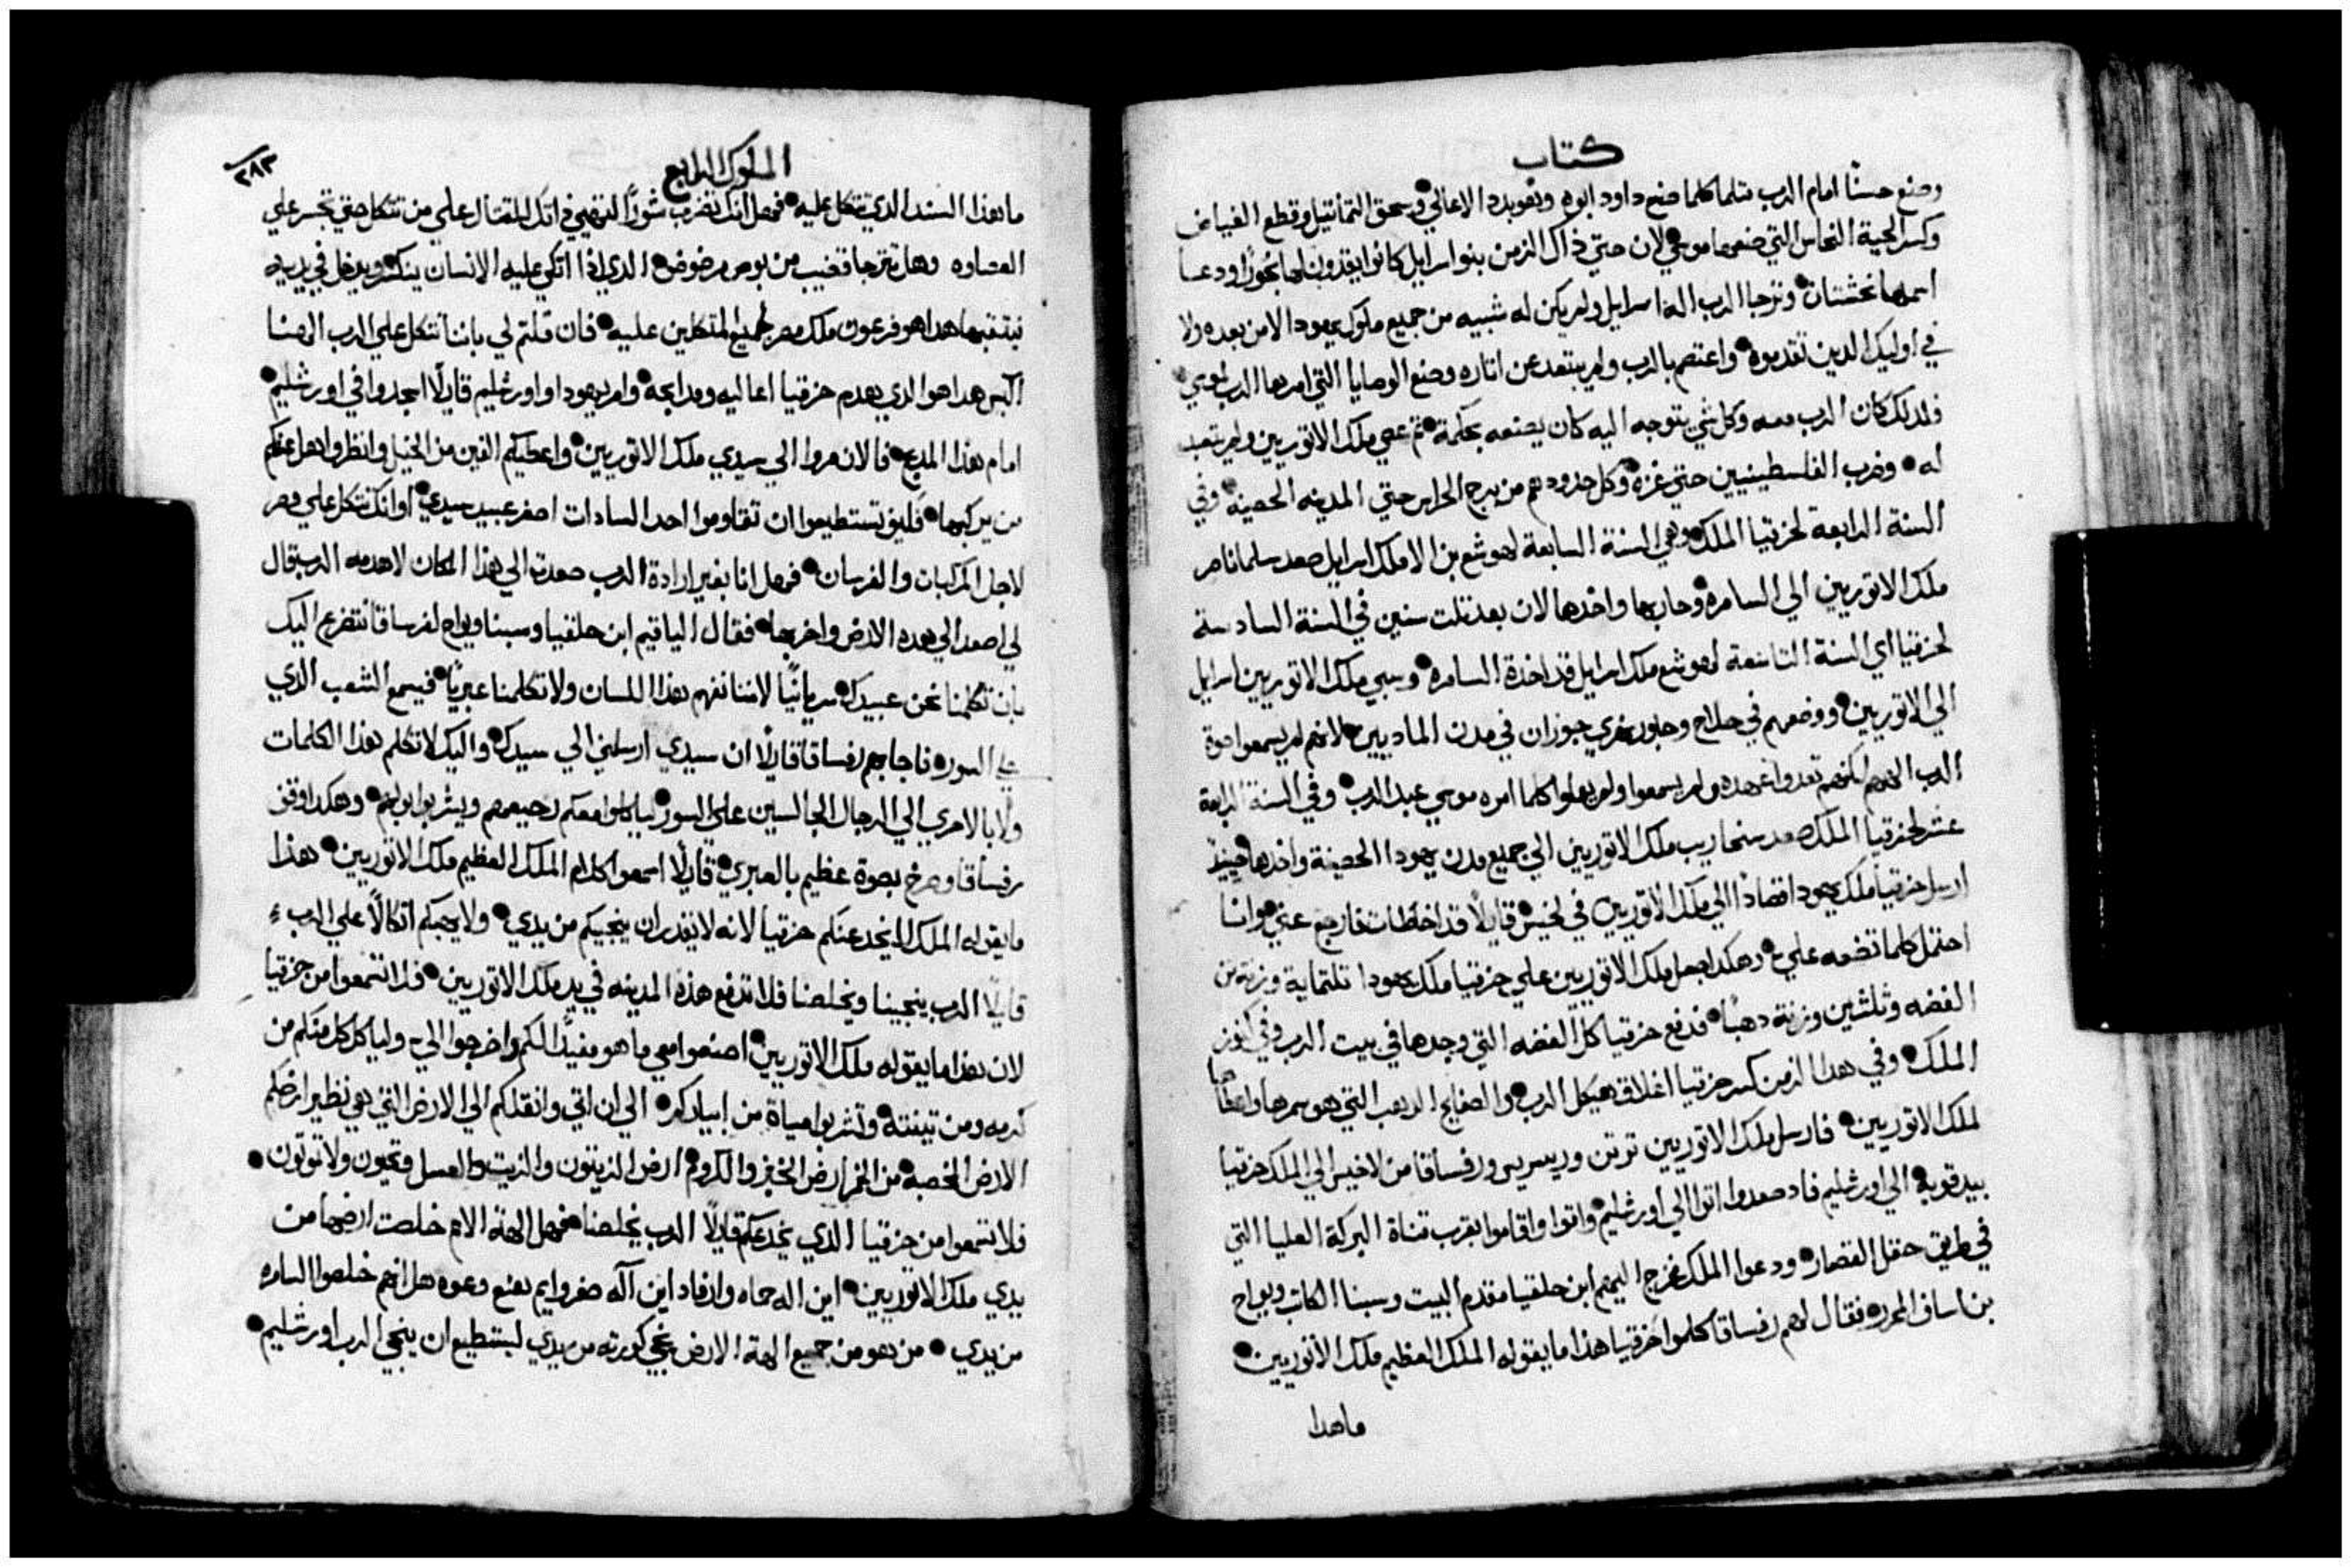 كتاب
وصنع حسنًا امام الرب مثلما كلما صنع داود ابوه وهو بدد الاعالي وسحق التماتيل وقطع الغياض
وكسر الحية النحاس التي صنعها موسي لان حتي ذاك الزمن بنو اسرايل كانوا يقدون لها بخورًا ودعا
اسمها نحشتان وترجا الرب اله اسرايل ولم يكن له شبيه من جميع ملوك يهودا لا من بعده ولا
في اوليك الدين تقدموه واعتصم بالرب ولم يبتعد عن اتاره وصنع الوصايا التي امر بها الرب لموسي
فلدلك كان الرب معه وكل شي يتوجه اليه كان يصنعه بحكمة تم عصي ملك الاتوريين ولم يتعبد
له وضرب الفلسطينيين حتي غزة وكل حدودهم من برج الحراس حتي المدينه الحصينة وفي
السنة الرابعة لحزقيا الملك وهي السنة السابعة لهوشع بن الا ملك اسرايل صعد سلماناصر
ملك الاتوريين الي السامره وحاربها واخدها لان بعد تلت سنين في السنة السادسة
لحزقيا اي السنة التاسعة لهوشع ملك اسرايل قد اخدة السامره وسبي ملك الاتوريين اسرايل
الي الاتوريين ووضعهم في حلاح وحابور نهري جوزان في مدن الماديين لانهم لم يسمعوا صوة
الرب الههم لكنهم تعدوا عهده ولم يسمعوا ولم يعملوا كلما امره موسي عبد الرب وفي السنة الرابعة
عشر لحزقيا الملك صعد سنحاريب ملك الاتوريين الي جميع مدن يهودا الحصينة واخدها حينيدٍ
ارسل حزقيا ملك يهودا قصادًا الي ملك الاتوريين في لخيس قايلًا قد اخطات فارجع عني وانا
احتمل كلما تضعه علي وهكدا جعل ملك الاتوريين علي حزقيا ملك يهودا تلتماية وزنة من
الفضه وتلتين وزنة دهبًا فدفع حزقيا كل الفضه التي وجدها في بيت الرب وفي كنوز
الملك وفي هدا الزمن كسر حزقيا اغلاق هيكل الرب والصفايح الدهب التي هو سمرها واعطاها
لملك الاتوريين فارسل ملك الاتوريين ترتن وريسريس ورفساقا من لاخيس الي الملك حزقيا
بيد قوية الي اورشليم فاد صعدوا اتوا الي اورشليم واتوا واقاموا بقرب قناة البركة العليا التي
في طريق حقل القصار ودعوا الملك فخرج اليهم ابن حلقيا مقدم البيت وسبنا الكاتب ويواح
بن اساف المحرر فقال لهم رفساقا كلموا حزقيا هذا ما يقوله الملك العظيم ملك الاتوريين
ماهدا
الملوك الرابع
٢٨٣
ما هذا السند الدي تتكل عليه فهل انك تضرب شورًا لتهيي داتك للقتال علي من تتكل حتي تجسر علي
العصاوه وهل تترجا قضيب من بوص مرضوض الدي ادا اتكي عليه الانسان ينكسر ويدخل في يديه
فيتقبهما هدا هو فرعون ملك مصر لجميع المتكلين عليه فان قلتم لي باننا نتكل علي الرب الهنا
اليس هدا هو الدي هدم حزقيا اعاليه ومدابحه وامر يهودا واورشليم قايلًا اسجدوا في اورشليم
امام هذا المدبح فالان مروا الي سيدي ملك الاتوريين واعطيكم الفين من الخيل وانظروا هل عندكم
من يركبها فكيف تستطيعوا ان تقاوموا احد السادات اصغر عبيد سيدي او انك تتكل علي مصر
لاجل المركبات والفرسان فهل انا بغير ارادة الرب صعدت الي هذا المكان لاهدمه الرب قال
لي اصعد الي هده الارض واخربها فقال الياقيم ابن حلقيا وسبنا ويواح لرفساقا نتضرع اليك
بان تكلمنا نحن عبيدك سريانيًا لاننا نفهم بهذا اللسان ولا تكلمنا عبريًا فيسمع الشعب الدي
علي السور فاجابهم رفساقا قايلًا ان سيدي ارسلني الي سيدك واليك لاتكلم بهذا الكلمات
ولا بالاحري الي الرجال الجالسين علي السور لياكلوا معكم رجيعهم ويشربوا بولهم وهكدا وقف
رفساقا وصرخ بصوة عظيم بالعبري قايلًا اسمعوا كلام الملك العظيم ملك الاتوريين هذا
ما يقوله الملك لا يخدعنكم حزقيا لانه لا يقدر ان ينجيكم من يدي ولا يعطيكم اتكالًا علي الرب
قايلًا الرب ينجينا ويخلصنا فلا تدفع هذه المدينه في يد ملك الاتوريين فلا تسمعوا من حزقيا
لان هذا ما يقوله ملك الاتوريين اصنعوا معي ما هو مفيدًا لكم واخرجوا الي وليا كل كل منكم من
كرمه ومن تينته وتشربوا مياة من ابياركم الي ان اتي وانقلكم الي الارض التي هي نظير ارضكم
الارض الخصبه من الخمر ارض الخبز والكروم ارض الزيتون والزيت والعسل وتحيون ولا تموتون
فلا تسمعوا من حزقيا الدي يخدعكم قايلًا الرب يخلصنا فهل الهة الامم خلصت ارضها من
يدي ملك الاتوريين اين اله حماه وارفاد اين آله صفروايم يهنع وعوه هل انهم خلصوا السامره
من يدي من هو من جميع الهة الارض نجي كورته من يدي ليستطيع ان ينجي الرب اورشليم